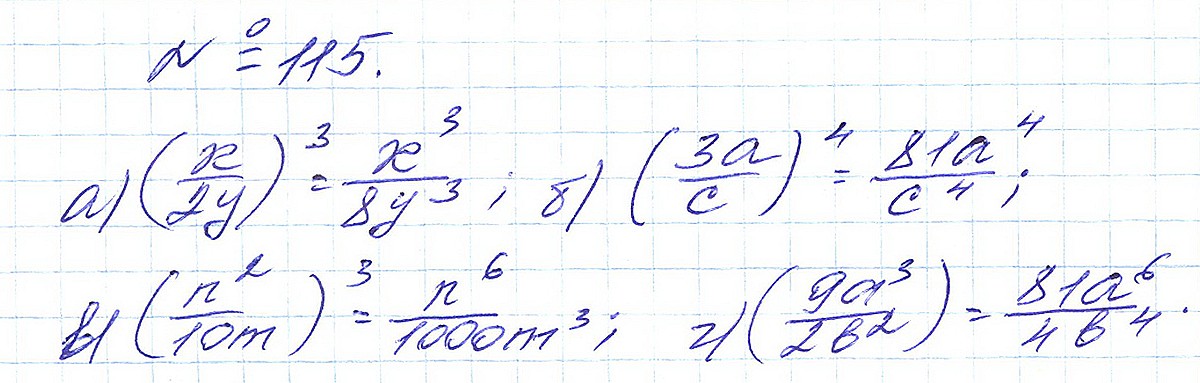 № 115.
а) (x/2y)³ = x³/8y³ ; б) (3a/c)⁴ = 81a⁴/c⁴ ;
в) (n²/10m)³ = n⁶/1000m³ ; г) (9a³/2b²) = 81a⁶/4b⁴ .